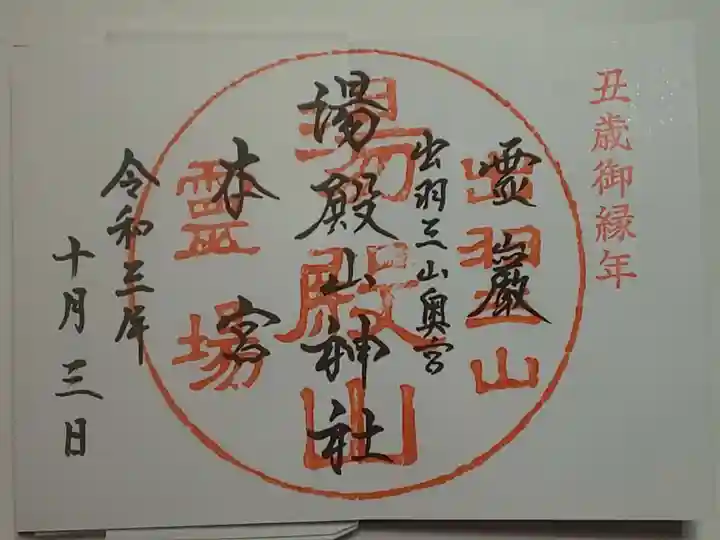 丑歳御縁年
霊巌
出羽三山奥宮
湯殿山神社
本宮
令和三年
十月三日
出羽三山
湯殿山
霊場